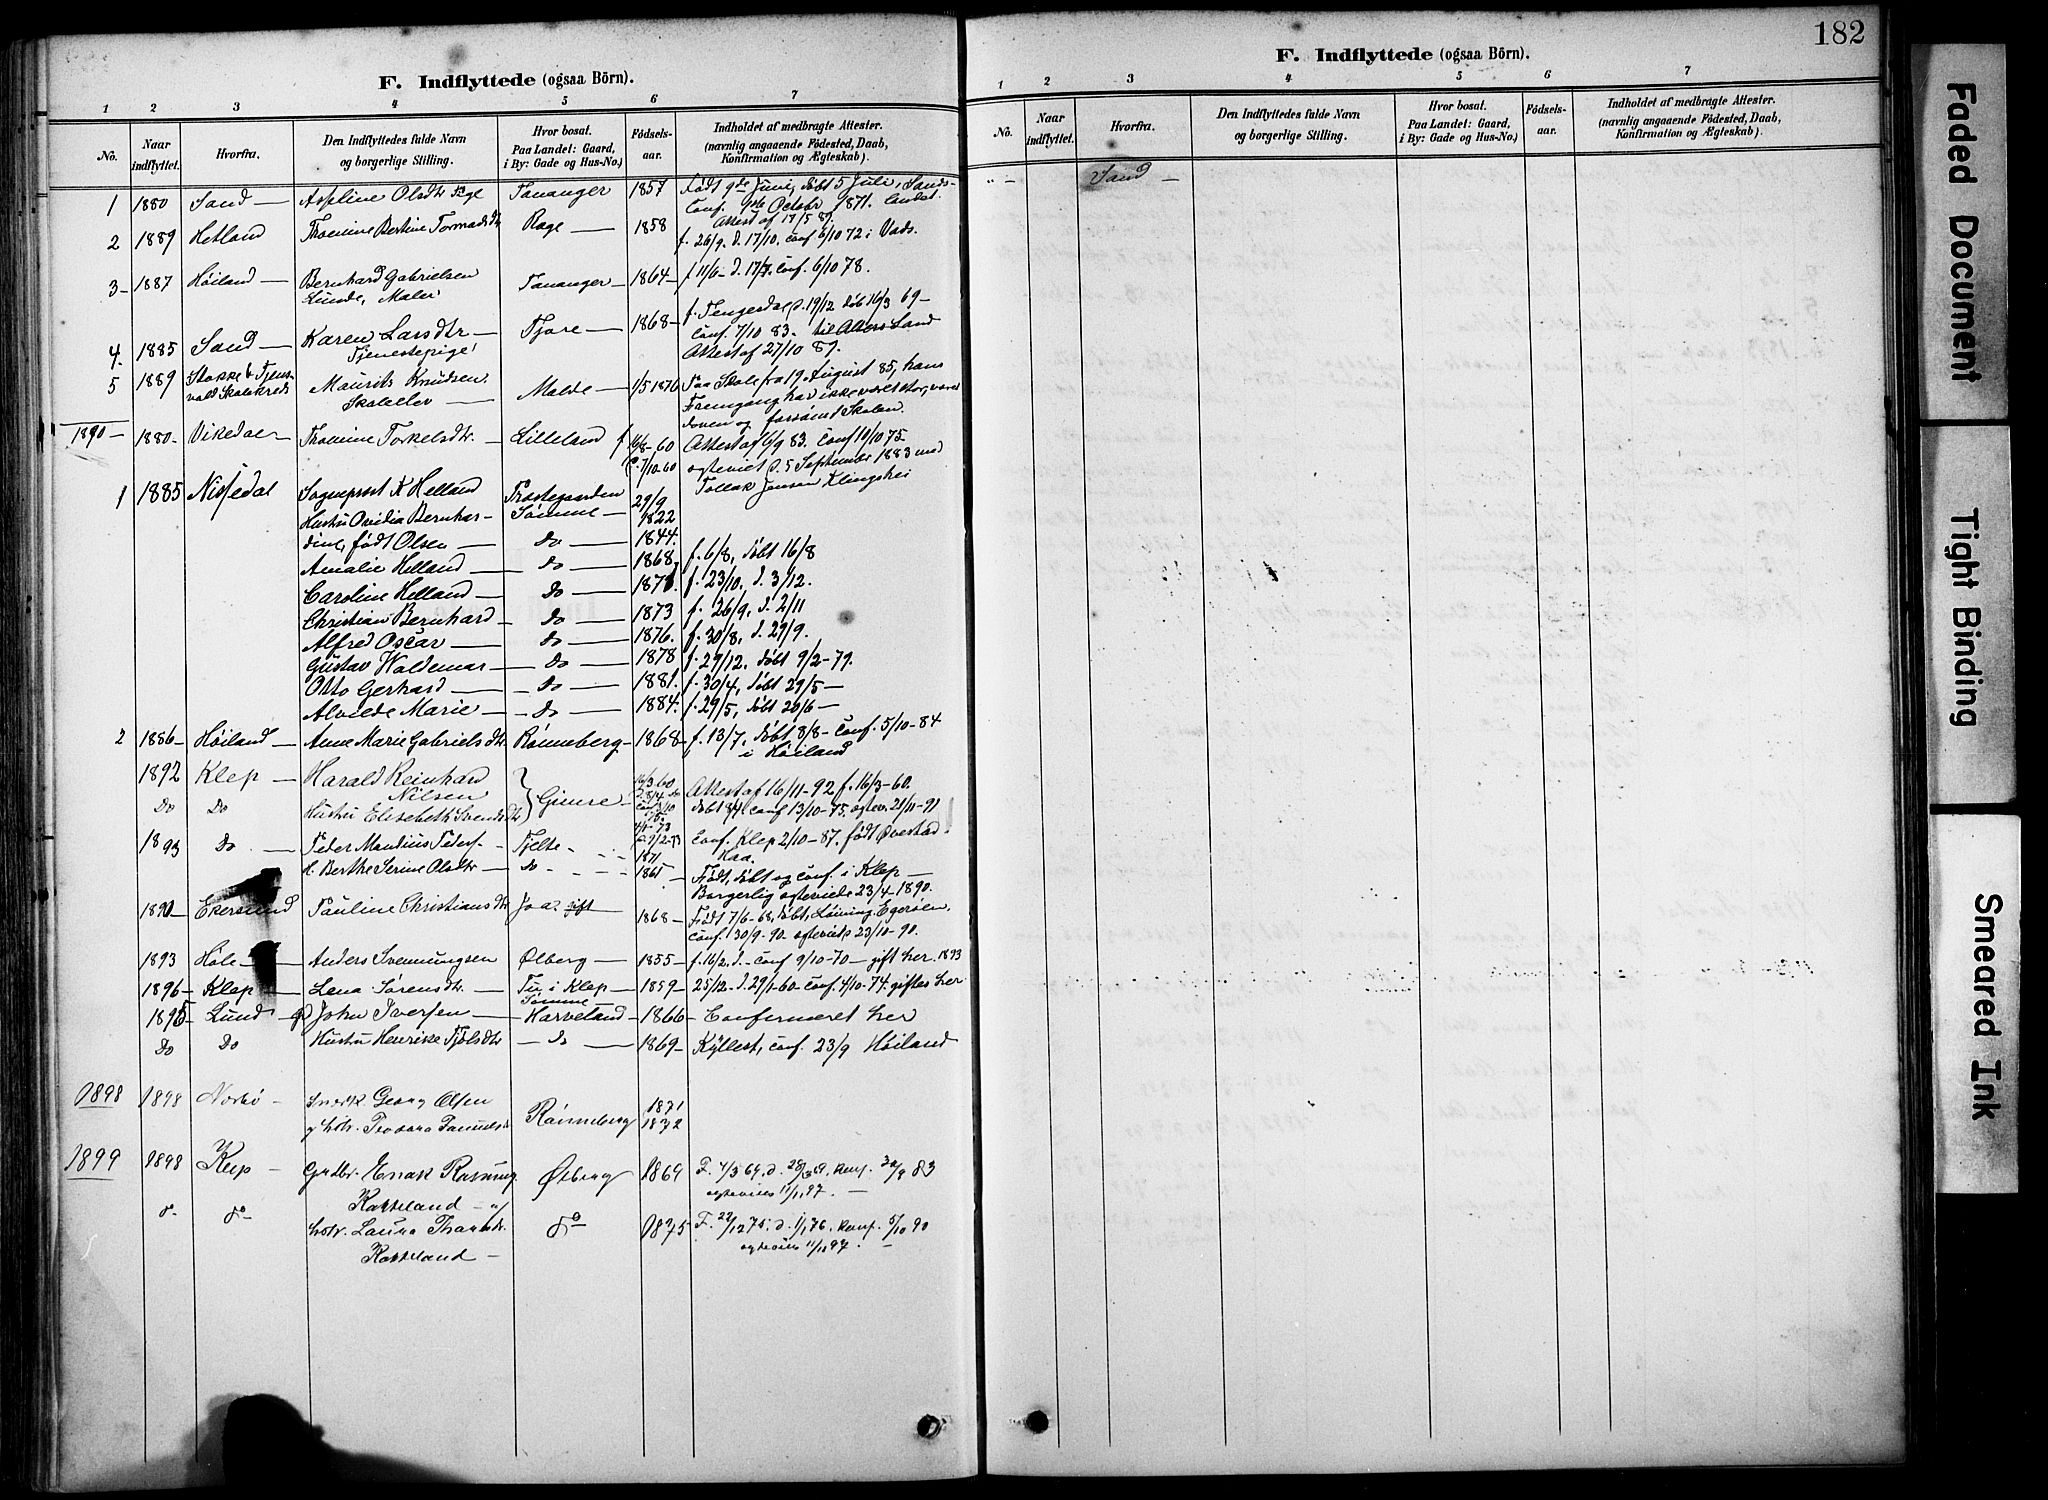 F. Indflyttede (ogsaa Börn).
1 2 3 4 5 6 7
No. Naar indflyttet. Hvorfra. Den Indflyttedes fulde Navn og borgerlige Stilling. Hvor bosat. Paa Landet: Gaard, i By: Gade og Hus-No.) Fødsels-aar. Indholdet af medbragte Attester. (navnlig angaaende Fødested, Daab, Konfirmation og Ægteskab).
1 1880 Sand — Olsdtr Tananger 1857 Født 9de Juni, døbt 5 Juli, Sands-
Conf. Octobr 1871.
Attest af 17/5 89.
2 1889 Hetland Thomine Bertine Rage — 1858 f. 26/9. d. 17/10. conf 6/10 72 i Vads.
3 - 1887 Høiland — Bernhard Gabrielsen Tananger — 1864 - f 11/6 - d. 17/7. Conf. 6/10 78.
Lunde, Maler
4. 1885 Sand — Karen Larsdtr — Tjore — 1868 - d. 19/12 døb 16/3 69 -
Tjenestepige Conf. 7/10 83. til Sand
Attest af 27/10 89.
5 1889 Stokke & Tjens-
vold Skolekreds Maurits Knudsen. Malde — 1/5 1876 Paa Skole fra 19. August 85, hans
Skoleelev — Fremgang har ikke været stor, været
doven og forsømt Skolen.
1890 — 1880 - Vikedal — Thomine Torkelsdtr. — Lilleland f. 16/8 - 60 Attest af 6/9 83. Conf 10/10 75
d. 7/10-60 egteviet d. 5 September 1883 med
Tollak Jensen Klingshei
1 1885 Nissedal Sogneprest K Helland Præstegaarden 29/9 1822
Hustru Ovidia Bernhar- Sømme —
dine, født Olsen — do — 1844.
Amalie Helland — do — 1868 f. 6/8, døbt 16/8
Caroline Helland — do — 1871. f. 23/10, d. 3/12.
Christian Bernhard — do — 1873 f. 26/9, d. 2/11
Alfred Oscar — do — 1876. f. 30/8, d. 29/9.
Gustav Waldemar — do — 1878 f. 29/12, døbt 9/2-79.
Otto Gerhard — do — 1881. f. 30/4, døbt 29/5 —
Alvilde Marie — do — 1884. f. 29/5, døbt 26/6 —
2 1886 — Høiland — Anne Marie Gabrielsdtr. Rønneberg - 1868 - f. 13/7, døbt 8/8 - Conf. 5/10-84
i Høiland
1892 Klep — Harald Reinhard Gimre — 16/3 60 Attest af 16/11-92 f. 16/3-60.
Nilsen
Do Do Hustru Elisabeth Svendsdtr døbt 8/4. conf 13/10-75. egtev. 21/11-91
1893 Do — Peder Mandius Peders. - Tjelte - 1871 Conf. Klep 2/10-87. født
Haa.
H. Berthe Serine Olsdtr — Do 1865 Født, døbt og conf. i Klep —
Borgerlig egteviede 23/4-1890.
1890 — Ekersund Pauline Christiansdtr Joa. gift 1868 — Født 7/6-68, døbt, Egerøen,
conf. 30/9-90 - egteviede 23/10-90.
1893 Høle Anders Svennungsen Ølberg — 1855 — f. 16/2. d. - Conf 9/10-70 - gift her. 1893
1896 — Klep — Lena Sørensdtr. — Tu i Klep — 1859 - 25/12-d. 29/1-60 - conf. 4/10-74. giftes her
Sømme
1895 — Lund — John Iversen — Harveland — 1866 — Confermeret her
Do Do Hustru Henrike — Do — 1869 — Kyllest, conf. 23/9 Høiland
1898 1898 Norbø - Snedk. Georg Olsen Rønneberg 1871
1872
1899 1898 Klep — Grdbr. Enok Rasmus. Ølberg 1869 F. 4/3 69. d. 28/3 69. Konf. 30/9 83
Kaxeland - egteviet 11/11 97. —
do do hstr. Laura do 1875 F. 22/12 75. d. 1/1 76. Konf. 5/10 90
Kaxeland — egteviet 11/11 97. —
182
F. Indflyttede (ogsaa Börn).
1 2 3 4 5 6 7
No. Naar indflyttet. Hvorfra. Den Indflyttedes fulde Navn og borgerlige Stilling. Hvor bosat. Paa Landet: Gaard, i By: Gade og Hus-No.) Fødsels-aar. Indholdet af medbragte Attester. (navnlig angaaende Fødested, Daab, Konfirmation og Ægteskab).
" — Sand —
Faded Document
Tight Binding
Smeared Ink